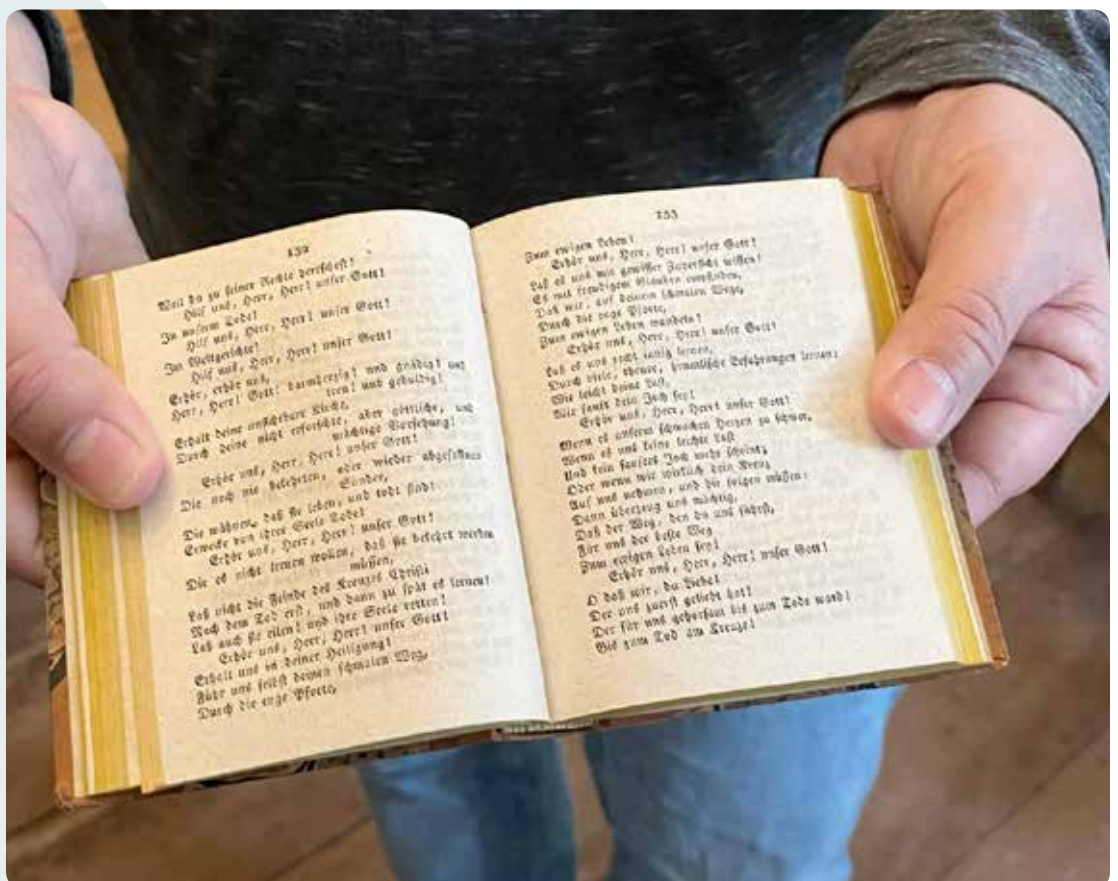 132
Weil du zu seiner Rechte herrschest!
Hilf uns, Herr, Herr! unser Gott!
In unserm Tode!
Hilf uns, Herr, Herr! unser Gott!
Im Weltgerichte!
Hilf uns, Herr, Herr! unser Gott!
Erhör, erhör uns,
Herr, Herr! Gott! barmherzig! und gnädig! und
treu! und geduldig!
Erhalt deine unsichtbare Kirche,
Durch deine nicht erforschte, aber göttliche, und
mächtige Vorsehung!
Erhör uns, Herr, Herr! unser Gott!
Die noch nie bekehrten, oder wieder abgefallnen
Sünder,
Die wähnen, daß sie leben, und todt sind!
Erwecke von ihrer Seele Tode!
Erhör uns, Herr, Herr! unser Gott!
Die es nicht lernen wollen, daß sie bekehrt werden
müssen,
Laß nicht die Feinde des Kreuzes Christi
Nach dem Tod erst, und dann zu spät es lernen!
Laß auch sie eilen! und ihre Seele retten!
Erhör uns, Herr, Herr! unser Gott!
Erhalt uns in deiner Heiligung!
Führ uns selbst deinen schmalen Weg,
Durch die enge Pforte,
133
Zum ewigen Leben!
Erhör uns, Herr, Herr! unser Gott!
Laß es uns mit gewisser Zuversicht wissen!
Es mit freudigem Glauben empfinden,
Daß wir, auf deinem schmalen Wege,
Durch die enge Pforte,
Zum ewigen Leben wandeln!
Erhör uns, Herr, Herr! unser Gott!
Laß es uns recht innig lernen,
Durch viele, theure, himmlische Erfahrungen lernen:
Wie leicht deine Last,
Wie sanft dein Joch sey!
Erhör uns, Herr, Herr! unser Gott!
Wenn es unserm schwachen Herzen zu schwer,
Wenn es uns keine leichte Last
Und kein sanftes Joch mehr scheint;
Oder wenn wir wirklich dein Kreuz
Auf uns nehmen, und dir folgen müssen:
Dann überzeug uns mächtig,
Daß der Weg, den du uns führst,
Für uns der beste Weg
Zum ewigen Leben sey!
Erhör uns, Herr, Herr! unser Gott!
O daß wir, du Liebe!
Der uns zuerst geliebt hat!
Der für uns gehorsam bis zum Tode ward!
Bis zum Tod am Kreuze!